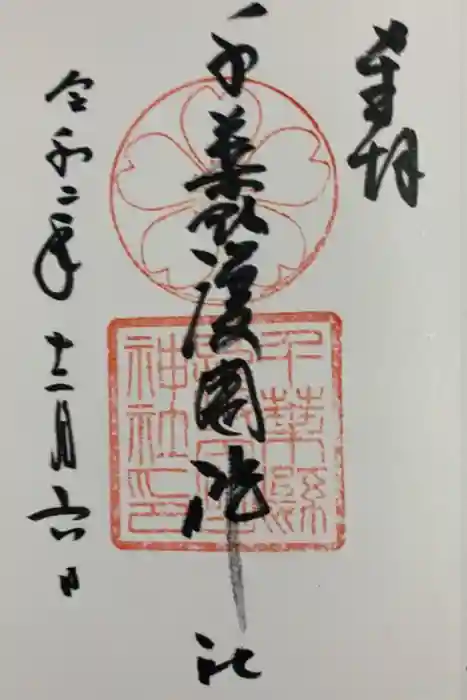 奉拝
千葉縣護國神社
千葉縣
護國
神社印
令和二年十二月六日